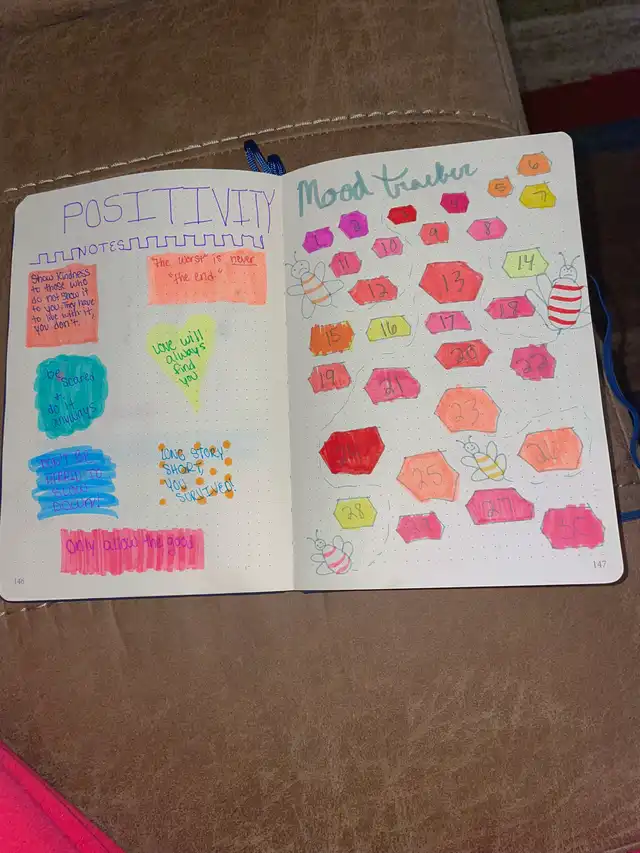 POSITIVITY
NOTES
Show kindness
to those who
do not show it
to you. They have
to live with it,
you don't.
"the worst" is never
"the end."
be scared
+
do it
anyways
Love will
always
find
you
DON'T BE
AFRAID TO
LONG STORY
SHORT,
YOU
SURVIVED!
Only allow the good
146
Mood tracker
1
2
3
4
5
6
7
8
9
10
11
12
13
14
15
16
17
18
19
20
21
22
23
25
26
27
28
30
147